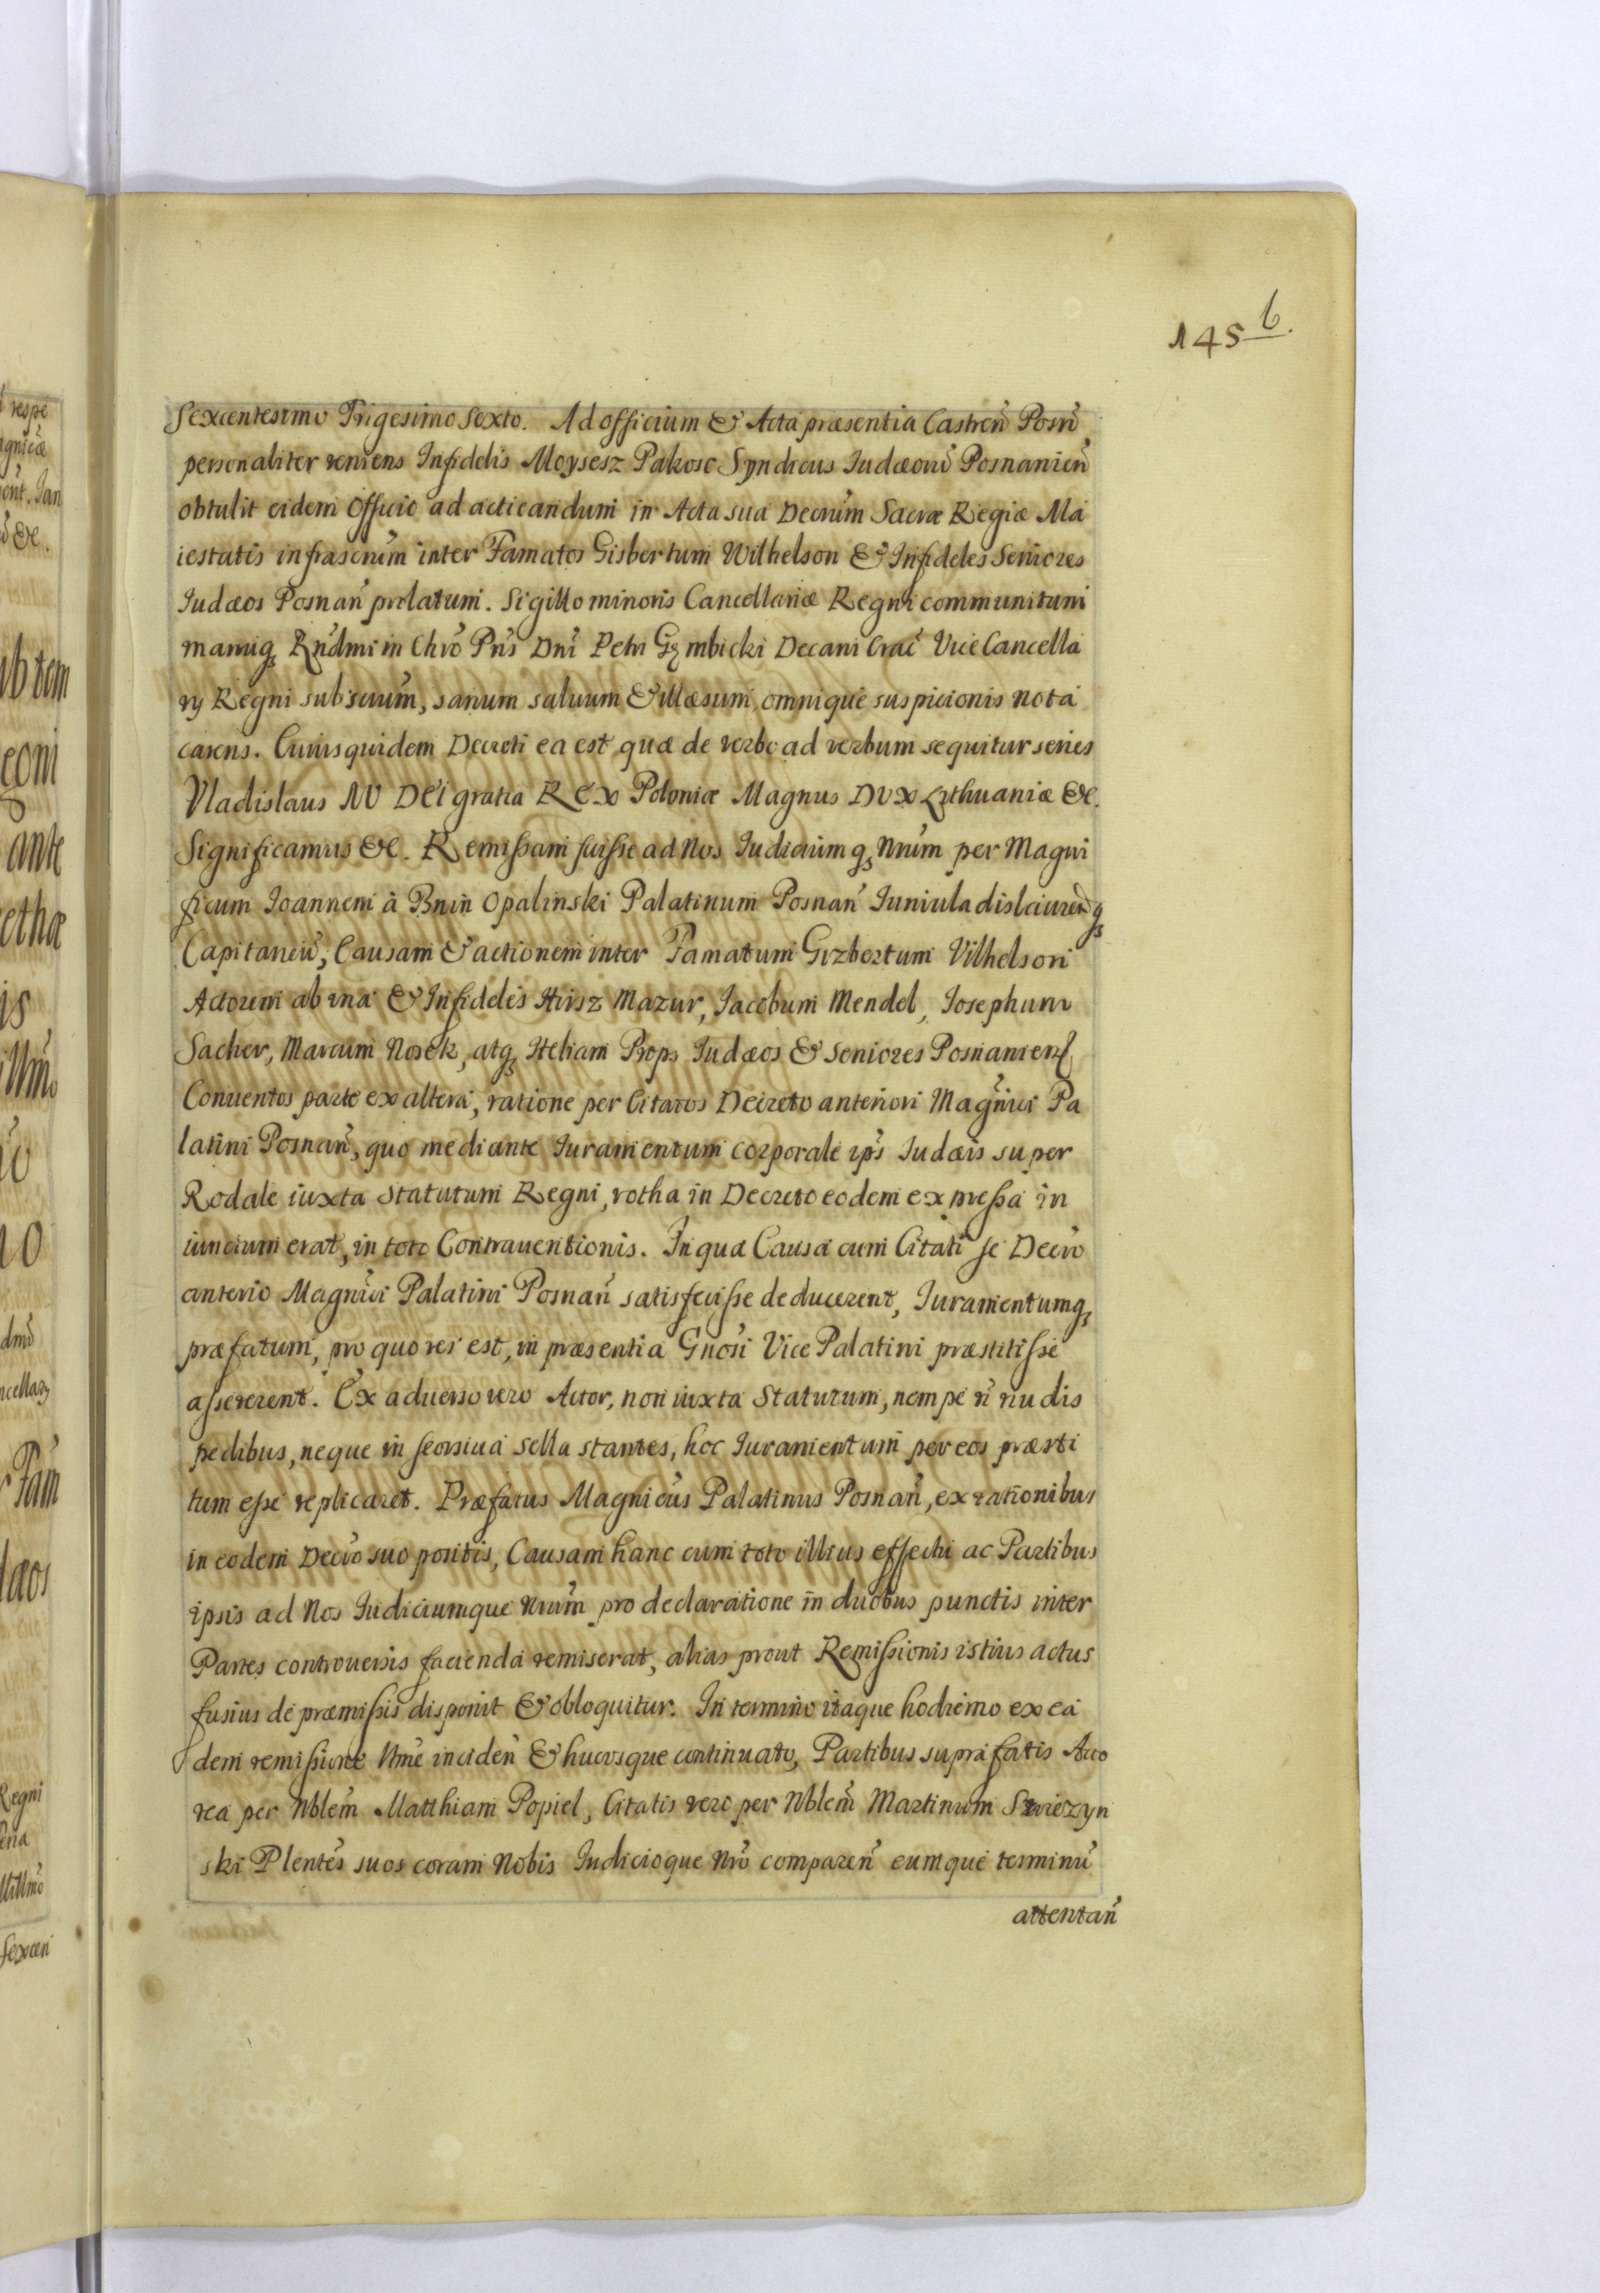 145 b.
Sexcentesimo Trigesimo Sexto. Ad officium & Acta præsentia Castreñ Posñ
personaliter veniens Infidelis Moysesz Pakosc Syndicus Iudæorū Posnanieñ
obtulit eidem Officio ad acticandum in Acta sua Decrūm Sacræ Regiæ Ma
iestatis infrascrūm inter Famatos Gisbertum Wilhelson & Infideles Seniores
Iudæos Posnañ prolatum. Sigillo minoris Cancellariæ Regni communitum
manuq₃ Rñdmi in Chrō Pñs Dnī Petri Gębicki Decani Crac̄ Vice Cancella
rij Regni subscrūm, sanum saluum & illæsum, omnique suspicionis nota
carens. Cuius quidem Decreti ea est quæ de verbo ad verbum sequitur series
Vladislaus IV DEI gratia REX Poloniæ Magnus DVX Lithuaniæ &c.
Significamus &c. Remissam fuisse ad Nos Iudiciumq₃ Nrūm per Magni
ficum Ioannem à Bnin Opalinski Palatinum Posnañ Iuniuladislauieñq₃
Capitaneū, Causam & actionem inter Famatum Gizbertum Vilhelson
Actorem ab vna & Infideles Hirsz Mazur, Iacobum Mendel, Iosephum
Sacher, Marcum Nosek, atq₃ Heliam Props Iudæos & Seniores Posnanien
Conuentos parte ex altera, ratione per Citatos Decreto anteriori Magnīci Pa
latini Posnañ, quo mediante Iuramentum corporale ipīs Iudæis super
Rodale iuxta Statutum Regni, rotha in Decreto eodem expressa in
iunctum erat, in toto Contrauentionis. In qua Causa cum Citati se Decrō
anterio Magnīci Palatini Posnañ satisfecisse deducerent, Iuramentumq₃
præfatum, pro quo res est, in præsentia Gnōsi Vice Palatini præstitisse
assererent. Ex aduerso vero Actor, non iuxta Statutum, nempe ñ nudis
pedibus, neque in seorsiua sella stantes, hoc Iuramentum per eos præsti
tum esse replicaret. Præfatus Magnicūs Palatinus Posnañ, ex rationibus
in eodem Decrō suo positis, Causam hanc cum toto illius effectu ac Partibus
ipsis ad Nos Iudiciumque Nrūm pro declaratione in duobus punctis inter
Partes controuersis facienda remiserat, alias prout Remissionis istius actus
fusius de præmissis disponit & obloquitur. In termino itaque hodierno ex ea
dem remissione Nme incideñ & hucusque continuato, Partibus suprafatis Acto
rea per Nblem̄ Matthiam Popiel, Citatis vero per Nblem̄ Martinum Swiezyn
ski Plentēs suos coram Nobis Iudicioque Nrō compareñ eumque terminū
attentañ